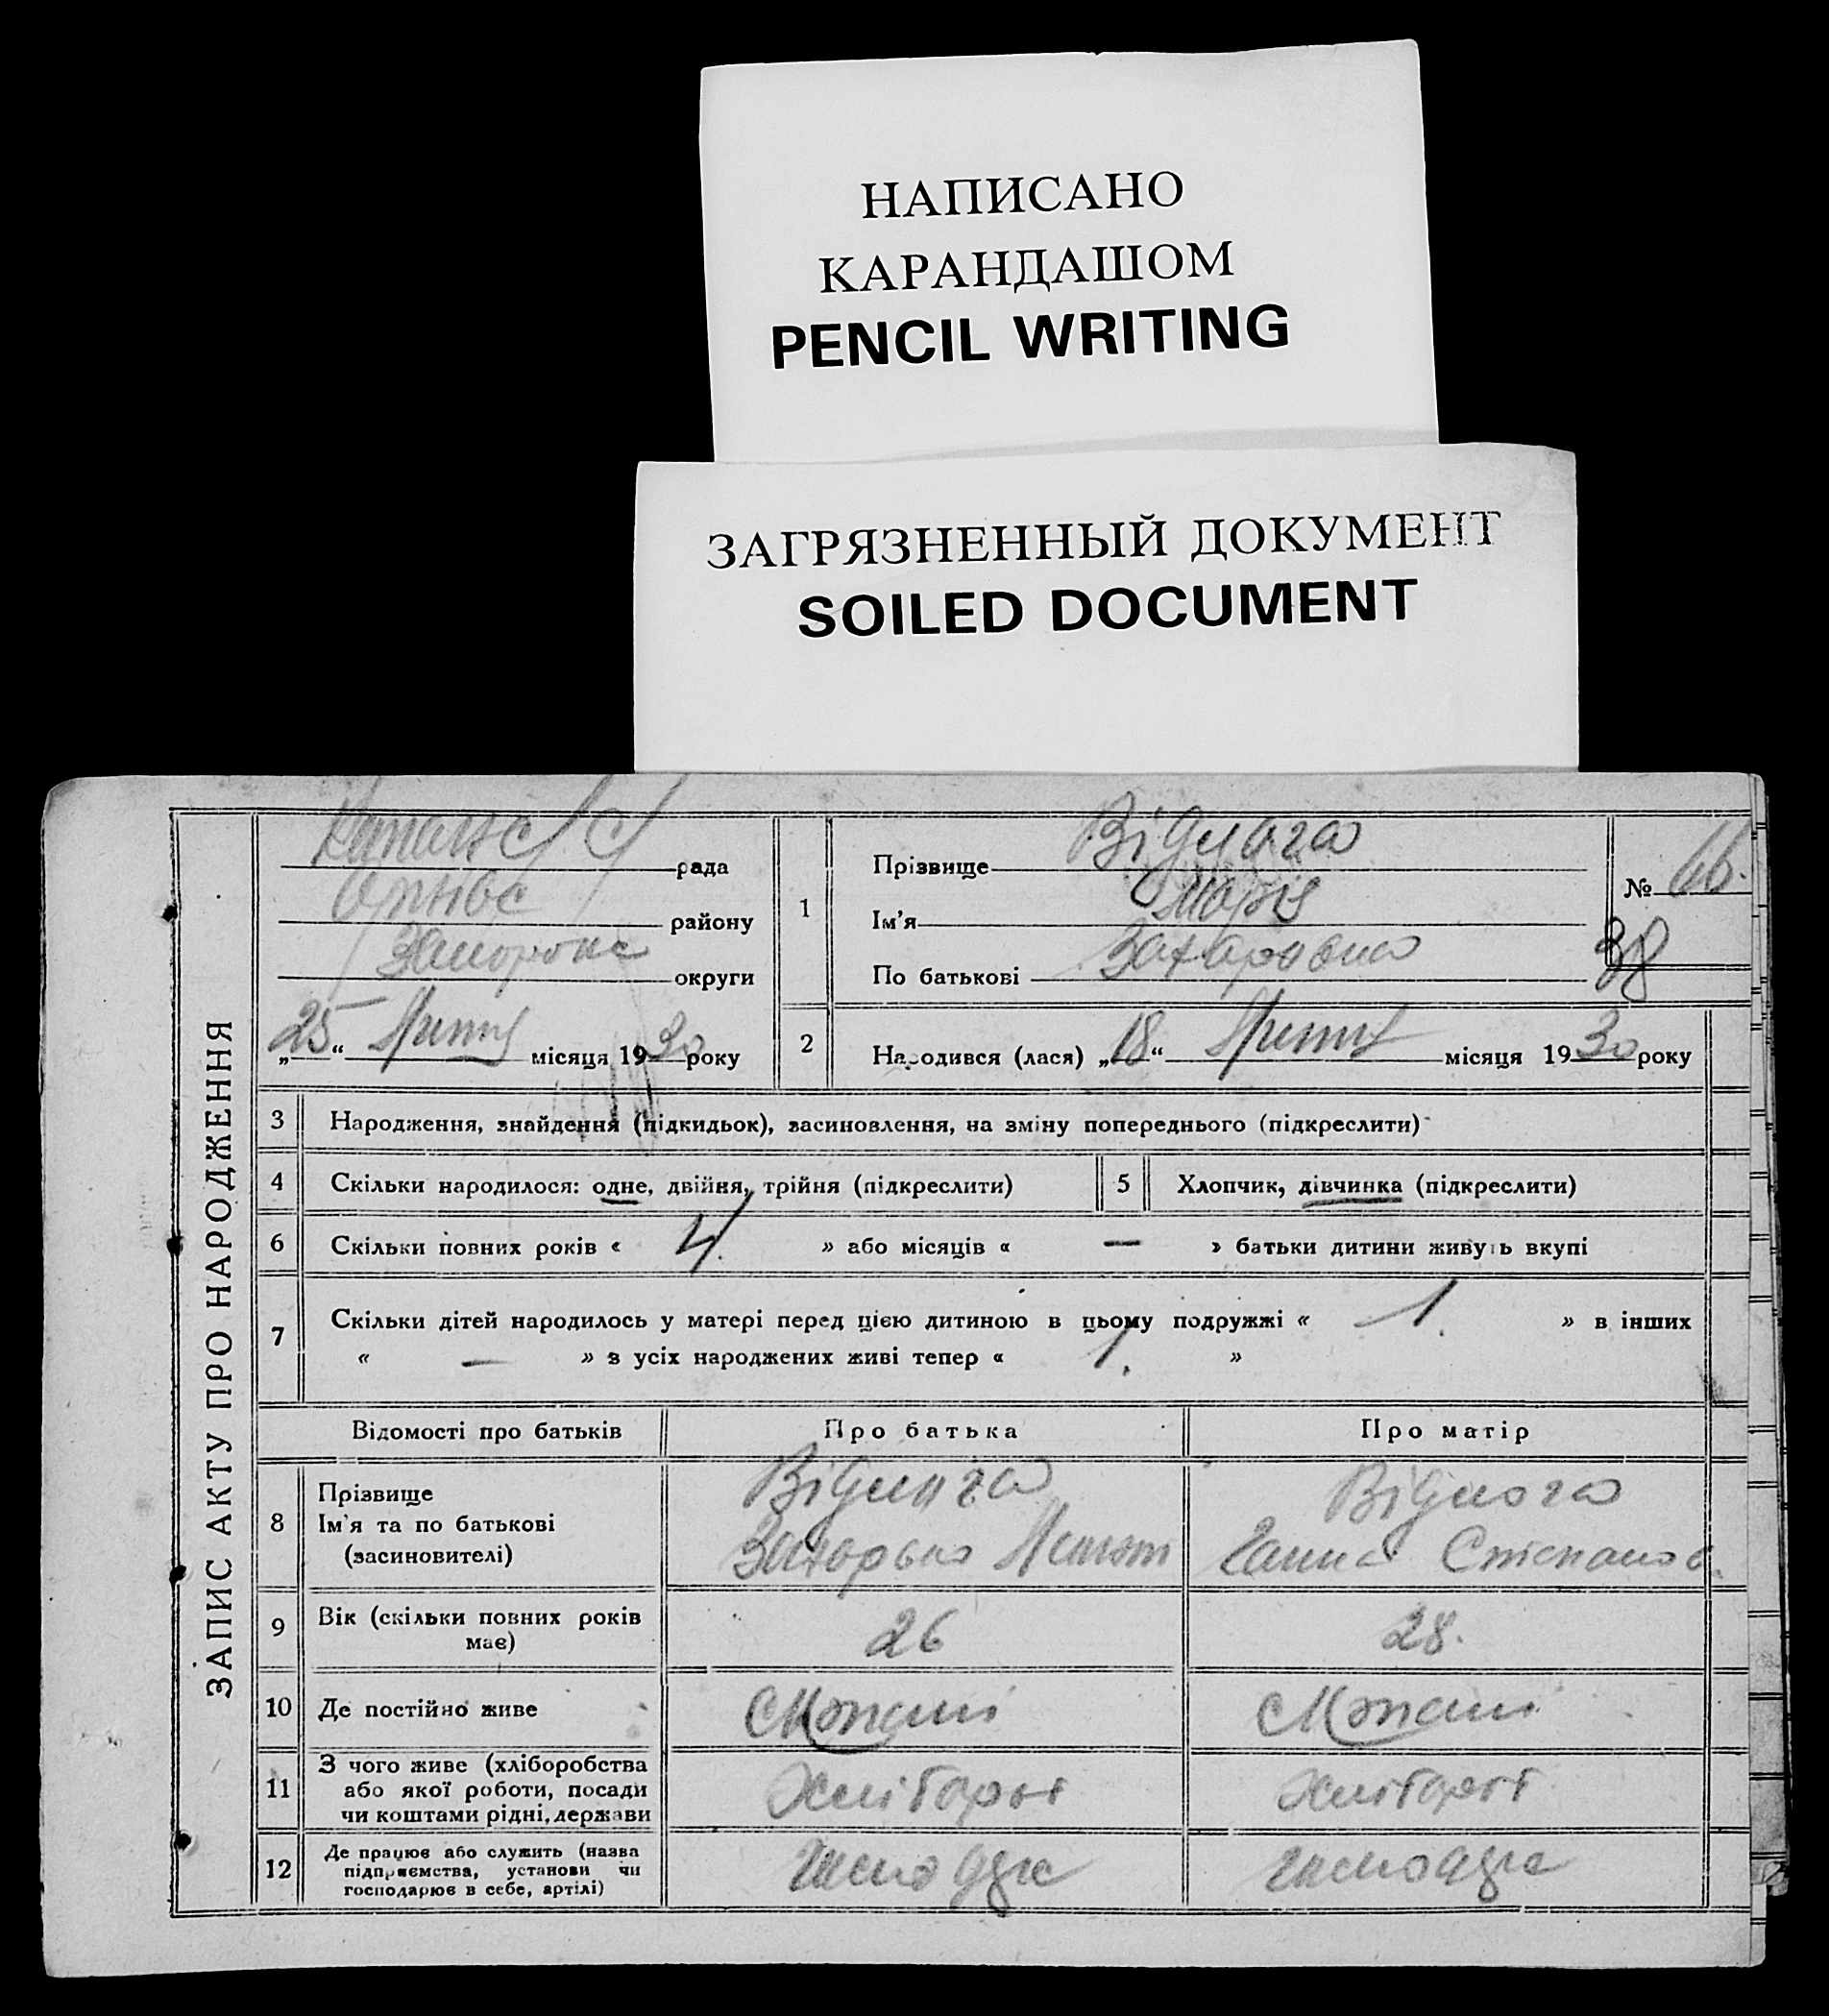 НАПИСАНО
КАРАНДАШОМ
PENCIL WRITING
ЗАГРЯЗНЕННЫЙ ДОКУМЕНТ
SOILED DOCUMENT
ЗАПИС АКТУ ПРО НАРОДЖЕННЯ
рада
району
округи
„25“ Липня місяця 1930 року
1
Прізвище
Ім'я Марія
По батькові Захаровна
№ 66.
38
2 Народився (лася) „18“ Липня місяця 1930 року
3 Народження, знайдення (підкидьок), засиновлення, на зміну попереднього (підкреслити)
4 Скільки народилося: одне, двійня, трійня (підкреслити)
5 Хлопчик, дівчинка (підкреслити)
6 Скільки повних років « 4. » або місяців « — » батьки дитини живуть вкупі
7 Скільки дітей народилось у матері перед цією дитиною в цьому подружжі « 1. » в інших
« — » з усіх народжених живі тепер « 1. »
Відомості про батьків Про батька Про матір
8 Прізвище
Ім'я та по батькові
(засиновителі)
Ганна Степанов.
9 Вік (скільки повних років має) 26 28.
10 Де постійно живе
11 З чого живе (хліборобства
або якої роботи, посади
чи коштами рідні, держави
Хлібороб Хлібороб
12 Де працює або служить (назва
підприємства, установи чи
господарює в себе, артілі)